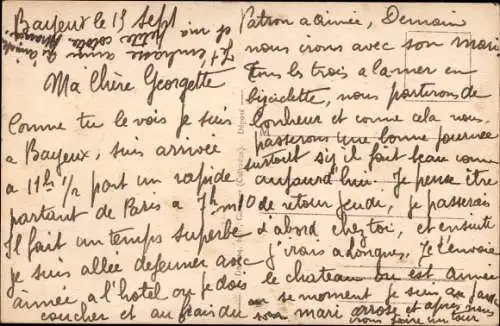 Bayeux le 15 sept
Je t'embrasse ainsi que
et ma petite
Ma Chère Georgette
Comme tu le vois je suis
a Bayeux, suis arrivée
a 11h 1/2 part un rapide
partant de Paris a 7h m 10
Il fait un temps superbe
je suis allée dejeuner avec
année a l'hotel ou je dois
coucher et au frais du
Patron a aimée, Demain
nous irons avec son mari
Tous les trois a la mer en
biciclette, nous partirons de
bonheur et come cela nous
passerons une bonne journée
surtout s'il fait beau come
aujourd'hui. Je pense être
de retour jeudi, je passerais
d'abord chez toi, et ensuite
j'irais a Longues, Je t'envoie
le chateau ou est Année
en se moment je suis au
son mari arrose et après nous
irons faire un tour
Dépose